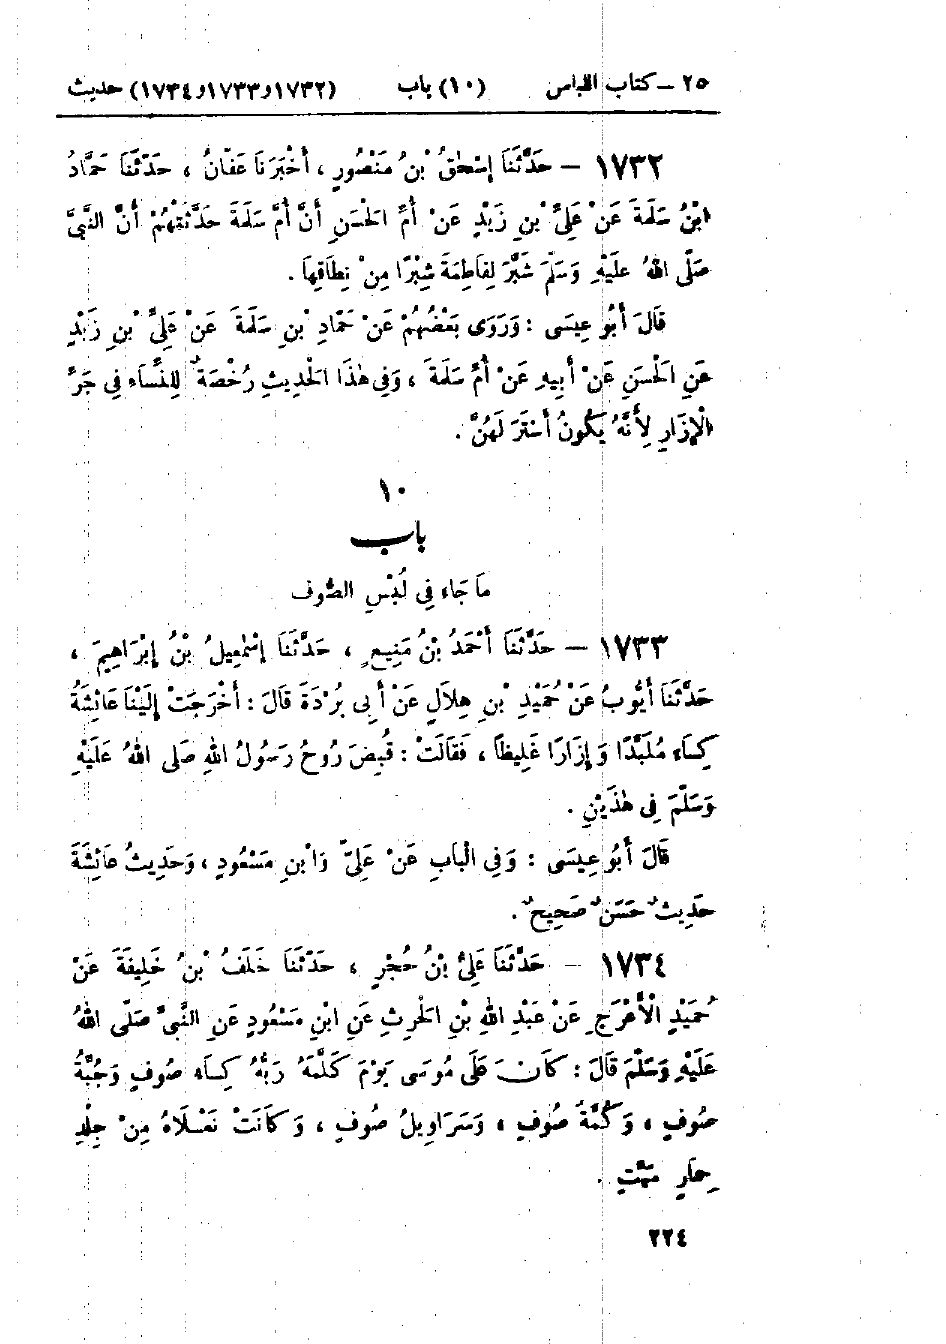 ٢٥ – كتاب اللباس (١٠) باب (١٧٣٢ و١٧٣٣ و١٧٣٤) حديث
١٧٣٢ – حَدَّثَنَا إِسْحٰقُ بْنُ مَنْصُورٍ ، أَخْبَرَنَا عَفَّانُ ، حَدَّثَنَا حَمَّادُ
ابْنُ سَلَمَةَ عَنْ عَلِيِّ بْنِ زَيْدٍ عَنْ أُمِّ الْحَسَنِ أَنَّ أُمَّ سَلَمَةَ حَدَّثَتْهُمْ أَنَّ النَّبِيَّ
صَلَّى اللهُ عَلَيْهِ وَسَلَّمَ شَبَّرَ لِفَاطِمَةَ شِبْرًا مِنْ نِطَاقِهَا .
قَالَ أَبُو عِيسَى : وَرَوَى بَعْضُهُمْ عَنْ حَمَّادِ بْنِ سَلَمَةَ عَنْ عَلِيِّ بْنِ زَيْدٍ
عَنِ الْحَسَنِ عَنْ أَبِيهِ عَنْ أُمِّ سَلَمَةَ ، وَفِي هٰذَا الْحَدِيثِ رُخْصَةٌ لِلنِّسَاءِ فِي جَرِّ
الْإِزَارِ لِأَنَّهُ يَكُونُ أَسْتَرَ لَهُنَّ .
١٠
باب
مَا جَاءَ فِي لُبْسِ الصُّوفِ
١٧٣٣ – حَدَّثَنَا أَحْمَدُ بْنُ مَنِيعٍ ، حَدَّثَنَا إِسْمٰعِيلُ بْنُ إِبْرَاهِيمَ ،
حَدَّثَنَا أَيُّوبُ عَنْ حُمَيْدِ بْنِ هِلَالٍ عَنْ أَبِي بُرْدَةَ قَالَ : أَخْرَجَتْ إِلَيْنَا عَائِشَةُ
كِسَاءً مُلَبَّدًا وَإِزَارًا غَلِيظًا ، فَقَالَتْ : قُبِضَ رُوحُ رَسُولُ اللهِ صَلى اللهُ عَلَيْهِ
وَسَلَّمَ فِي هٰذَيْنِ .
قَالَ أَبُو عِيسَى : وَفِي الْبَابِ عَنْ عَلِيٍّ وَابْنِ مَسْعُودٍ ، وَحَدِيثُ عَائِشَةَ
حَدِيثٌ حَسَنٌ صَحِيحٌ .
١٧٣٤ – حَدَّثَنَا عَلِيُّ بْنُ حُجْرٍ ، حَدَّثَنَا خَلَفُ بْنُ خَلِيفَةَ عَنْ
حُمَيْدٍ الْأَعْرَجِ عَنْ عَبْدِ اللهِ بْنِ الْحٰرِثِ عَنِ ابْنِ مَسْعُودٍ عَنِ النَّبِيِّ صَلَّى اللهُ
عَلَيْهِ وَسَلَّمَ قَالَ : كَانَ عَلَى مُوسَى يَوْمَ كَلَّمَهُ رَبُّهُ كِسَاءُ صُوفٍ وَجُبَّةُ
صُوفٍ ، وَكُمَّةُ صُوفٍ ، وَسَرَاوِيلُ صُوفٍ ، وَكَانَتْ نَعْلَاهُ مِنْ جِلْدِ
حِمَارٍ مَيِّتٍ .
٢٢٤